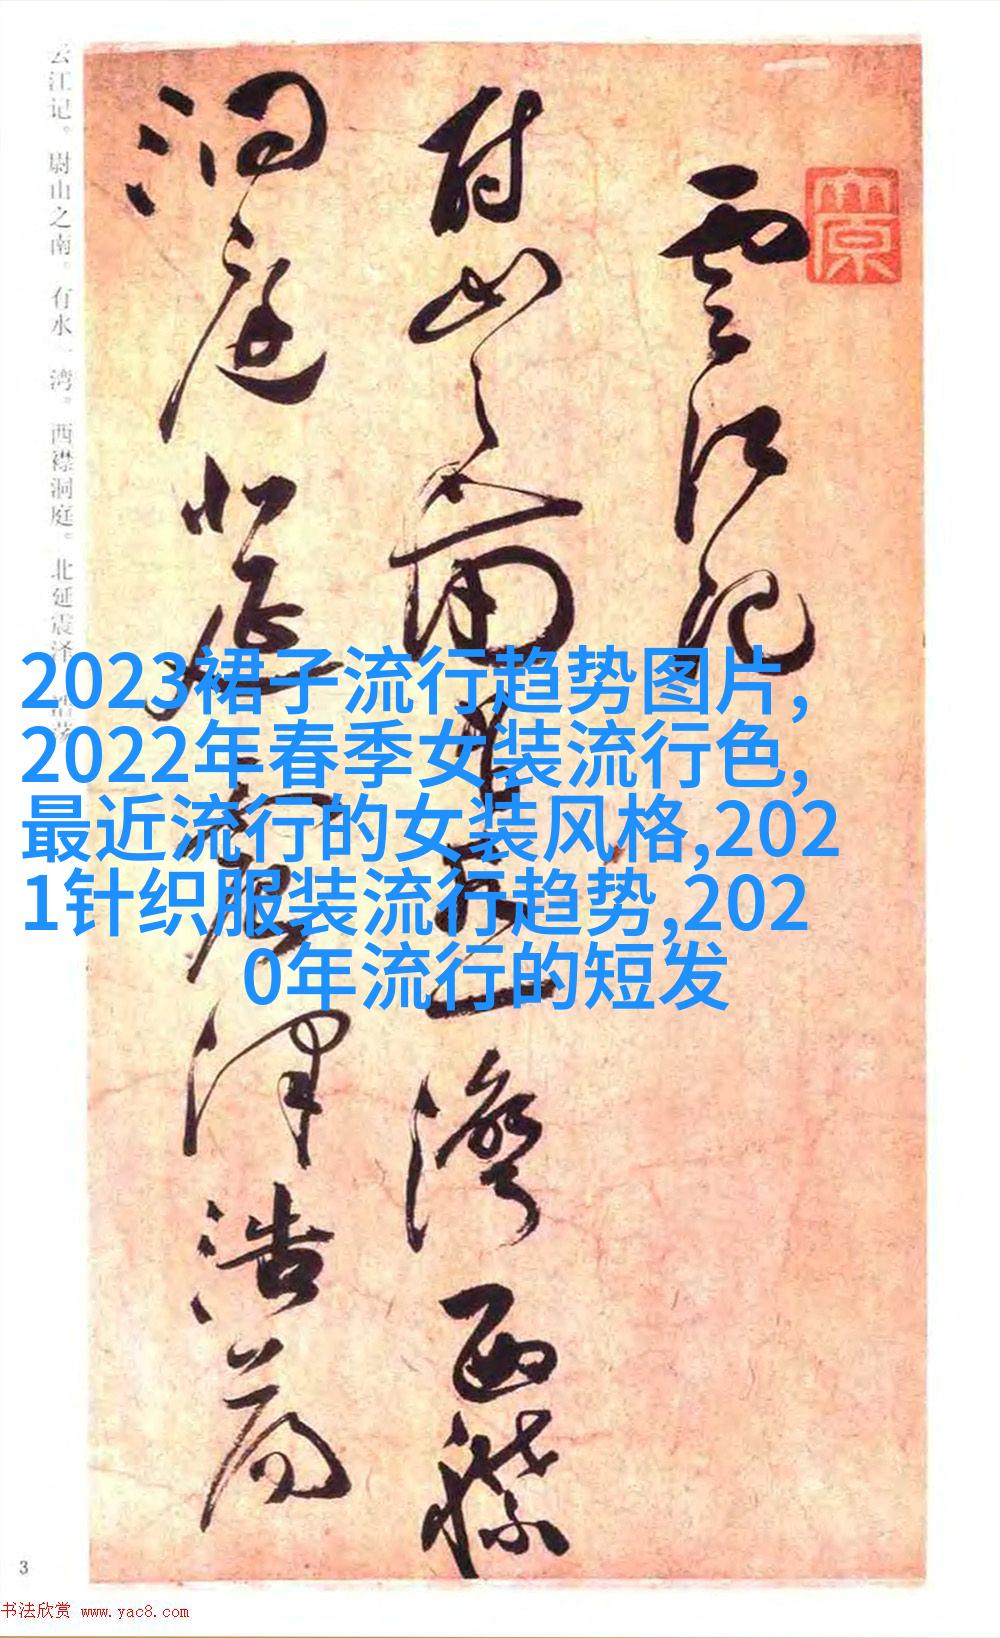 云江记。尉山之南。有水一湾。西襟洞庭。北延震泽
雲江記
尉山之南有水一灣西襟
洞庭北延震澤浩蕩
2023裙子流行趋势图片,
2022年春季女装流行色,
最近流行的女装风格,202
1针织服装流行趋势,202
0年流行的短发
3
书法欣赏 www.yac8.com